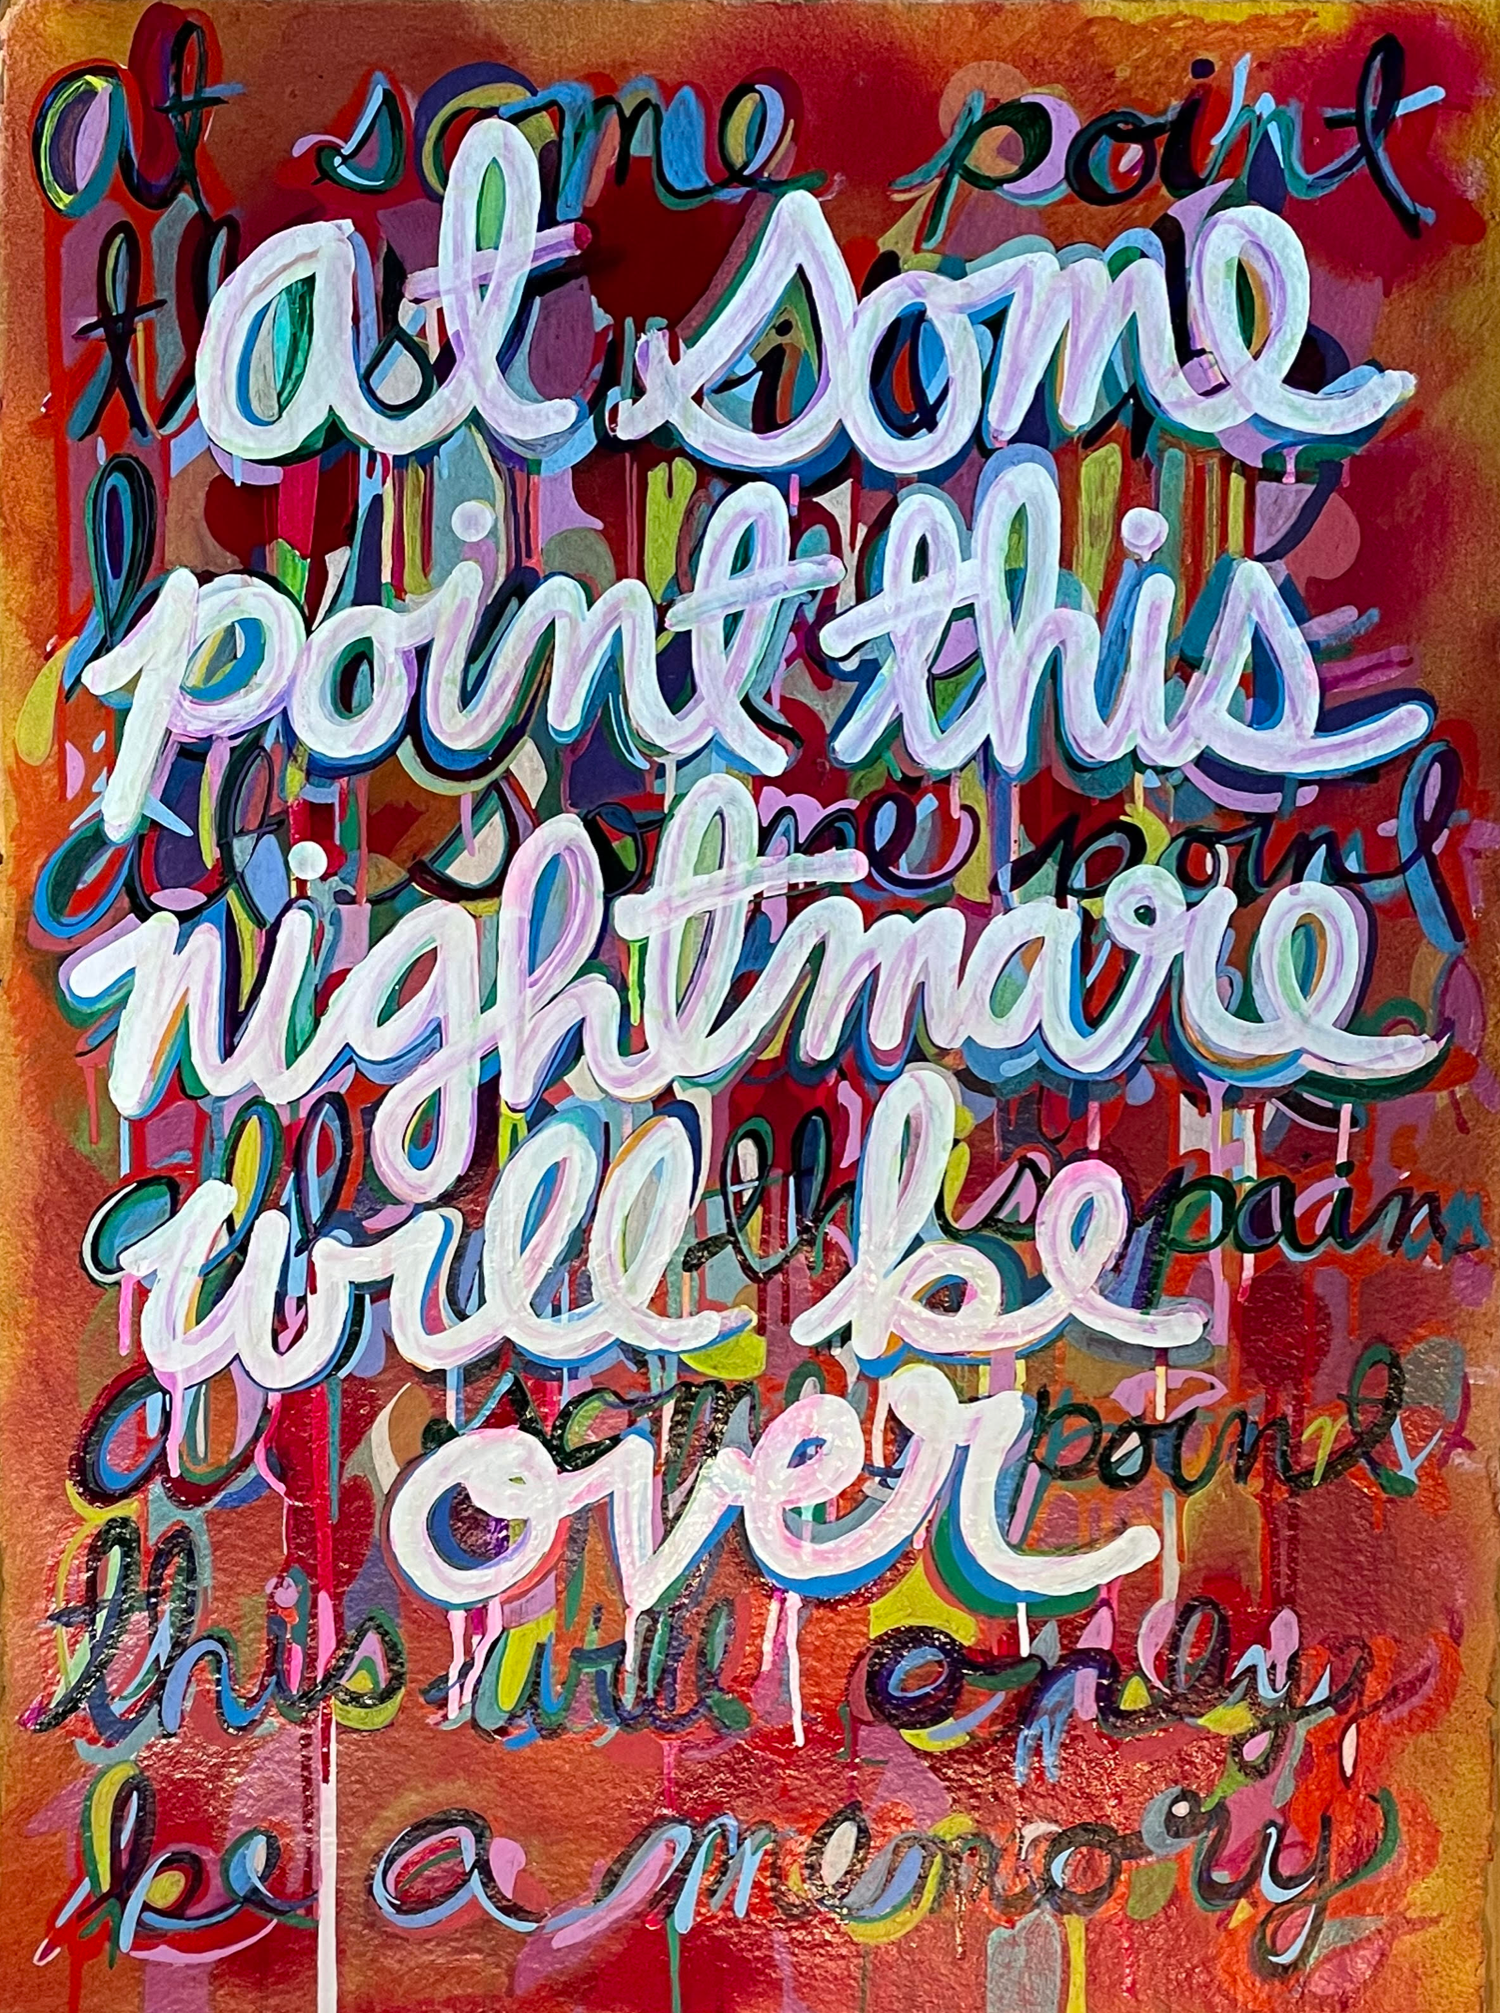 at some point
at some
point this
nightmare
at some point
will be
this pain
over
some point
this will only
be a memory